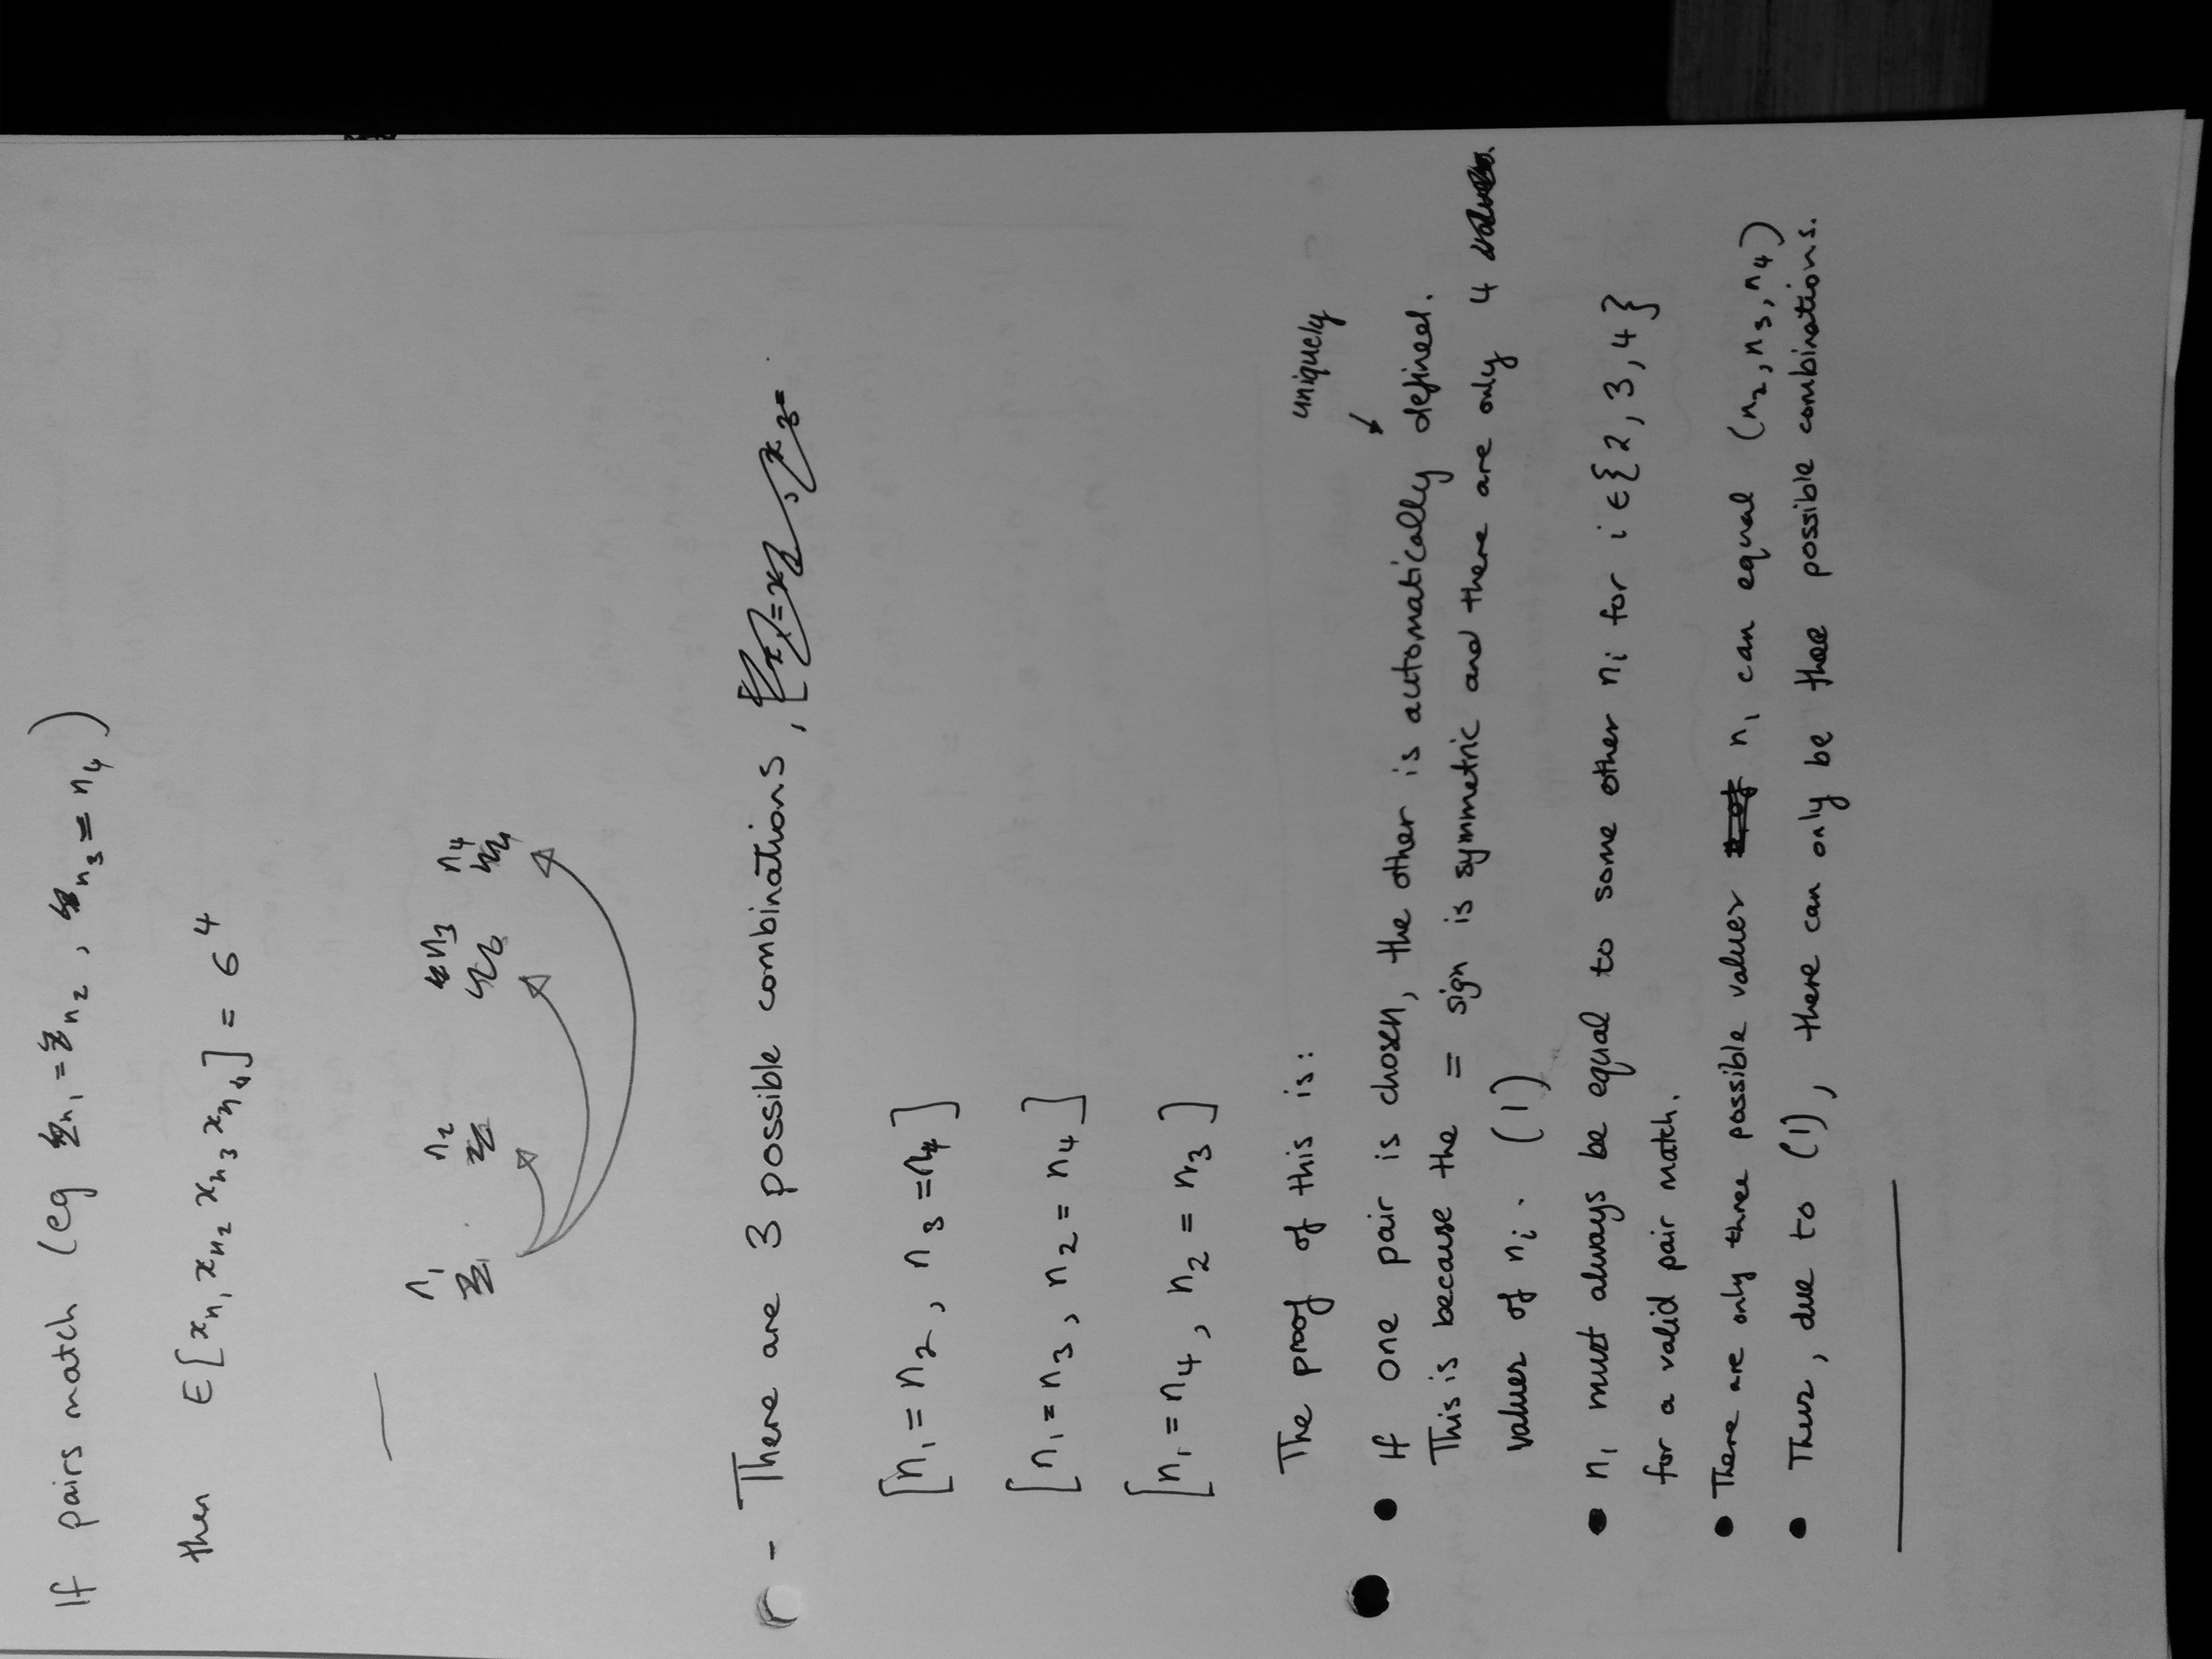 If pairs match (eg n₁ = n₂ , n₃ = n₄ )
then E[xₙ₁ xₙ₂ xₙ₃ xₙ₄] = σ⁴
n₁ n₂ n₃ n₄
- There are 3 possible combinations,
[n₁ = n₂ , n₃ = n₄]
[n₁ = n₃ , n₂ = n₄]
[n₁ = n₄ , n₂ = n₃]
The proof of this is:
uniquely
• If one pair is chosen, the other is automatically defined.
This is because the = sign is symmetric and there are only 4
values of nᵢ. (1)
• n₁ must always be equal to some other nᵢ for i ∈ {2, 3, 4}
for a valid pair match.
• There are only three possible values n₁ can equal (n₂, n₃, n₄)
• Thus, due to (1), there can only be thee possible combinations.